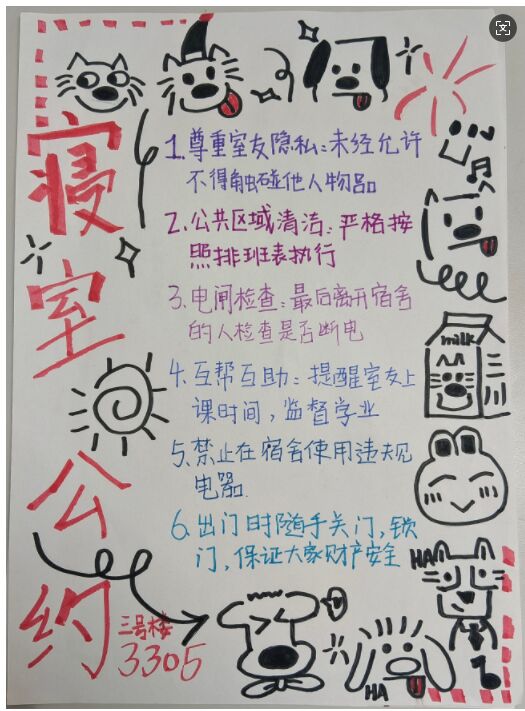 寝室公约
1.尊重室友隐私:未经允许
不得触碰他人物品
2.公共区域清洁:严格按
照排班表执行
3.电闸检查:最后离开宿舍
的人检查是否断电
4.互帮互助:提醒室友上
课时间,监督学业
5.禁止在宿舍使用违规
电器.
6.出门时随手关门,锁
门,保证大家财产安全
三号楼
3305
milk
HA
HA